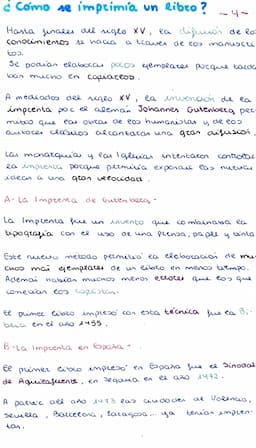 ¿Cómo se imprimía un libro? - 4 -
Hasta finales del siglo XV, la difusión de los
conocimientos se hacía a través de los manuscri
tos.
Se podían elaborar pocos ejemplares porque tarda
ban mucho en copiarlos.
A mediados del siglo XV, la invención de la
imprenta por el alemán Johannes Gutenberg, per
mitió que las obras de los humanistas y de los
autores clásicos alcanzaran una gran difusión.
Las monarquías y las Iglesias intentaron controlar
la imprenta porque permitía expandir las nuevas
ideas a una gran velocidad.
A- La Imprenta de Gutenberg.-
La Imprenta fue un invento que combinaba la
tipografía con el uso de una prensa, papel y tinta
Este nuevo método permitió la elaboración de mu
chos más ejemplares de un libro en menos tiempo.
Además habían muchos menos errores que los que
cometían los copistas.
El primer libro impreso con esta técnica fue la Bi-
blia en el año 1455.
B- La Imprenta en España.-
El primer libro impreso en España fue el Sinodal
de Aguilafuente, en Segovia en el año 1472.
A partir del año 1473 las ciudades de Valencia,
Sevilla, Barcelona, Zaragoza... ya tenían impren-
tas.